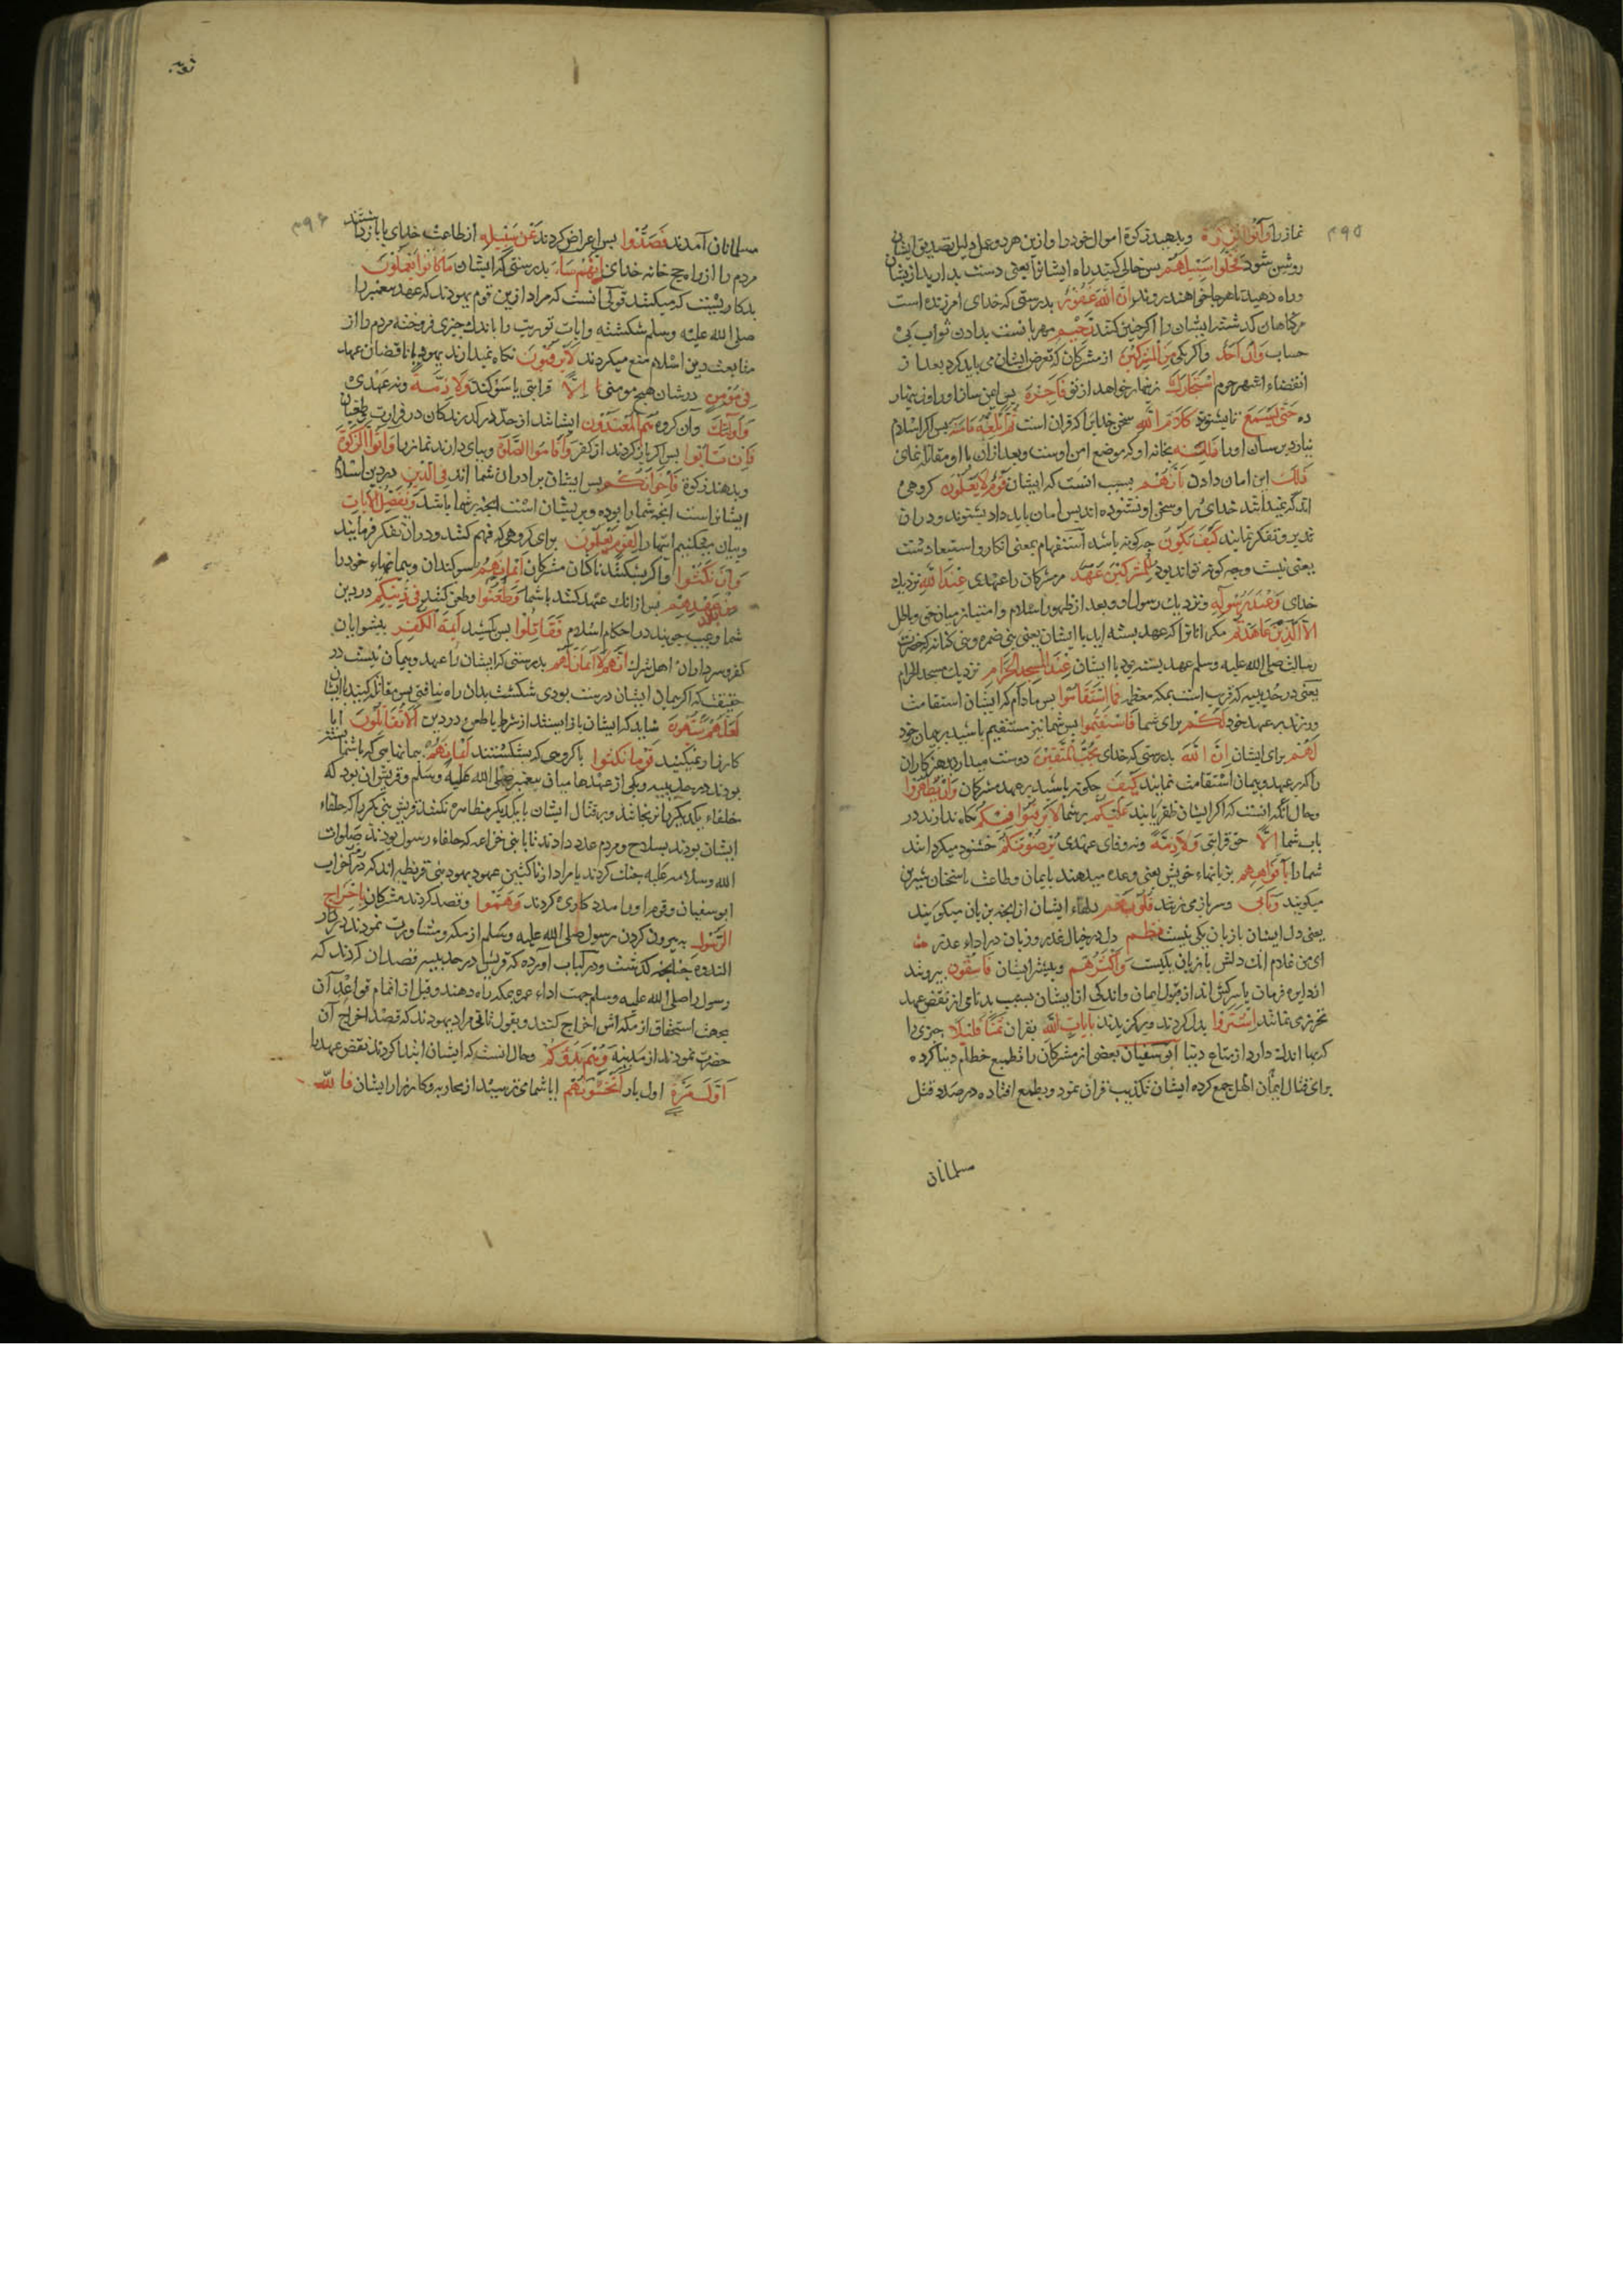 ۴۹۵
نماز را وآتوا الزكوة وبدهید زکوة اموال خود را وازین هر دو عمل دلیل تصدیق ایشان
روشن شود فخلوا سبیلهم پس خالی کنید راه ایشانرا یعنی دست بدارید از ایشان
وراه دهید تا هر جا خواهند بروند ان الله غفور بدرستی که خدای آمرزنده است
مر کناهان کذشته ایشان را اکر چنین کنند رحیم مهربانست بدادن ثواب بی
حساب وان احد واکر یکی من المشرکین از مشرکان که تعرض ایشان می باید کرد بعد از
انقضاء اشهر حرم استجارک زنهار خواهد از تو فاجره پس ایمن ساز او را وزینهار
ده حتی یسمع تا بشنود کلام الله سخن خدایرا که قران است ثم ابلغه مامنه پس اکر اسلام
نیارد برسان او را بخانه او که موضع امن اوست وبعد ازان با او مقاتله نمای
ذلک این امان دادن بانهم بسبب آنست که ایشان قوم لا یعلمون کروهی
اند که نمیدانند خدای را وسخن او نشنوده اند پس امان باید داد بشنوند ودران
تدبر وتفکر نمایند کیف یکون چه کونه باشد استفهام بمعنی انکار واستبعادست
یعنی نیست وچه کونه تواند بود للمشرکین عهد مر مشرکان را عهدی عند الله نزدیک
خدای وعند رسوله ونزدیک رسول او وبعد از ظهور اسلام وامتیاز میان حق وباطل
الا الذین عاهدتم مکر انانرا که عهد بسته اید با ایشان یعنی بنی ضمره وبنی کنانه که حضرت
رسالت صلی الله علیه وسلم عهد بسته بود با ایشان عند المسجد الحرام نزدیک مسجد الحرام
یعنی در حدیبیه که قریب است بمکه معظمه فما استقاموا پس مادام که ایشان استقامت
ورزند بر عهد خود لکم برای شما فاستقیموا پس شما نیز مستقیم باشید بر پیمان خود
لهم برای ایشان ان الله بدرستی که خدای یحب المتقین دوست میدارد پرهیزکاران
را که بر عهد وپیمان استقامت نمایند کیف چکونه باشید بر عهد مشرکان وان یظهروا
وحال آنکه انست که اکر ایشان ظفر یابند علیکم بر شما لا یرقبوا فیکم نکاه ندارند در
باب شما الا حق قرابتی ولا ذمة ونه وفای عهدی یرضونکم خشنود میکردانند
شما را بافواههم بزبانهاء خویش یعنی وعده میدهند بایمان وطاعت با سخنان شیرین
میکویند وتابی وسر باز می زند قلوبهم دلهاء ایشان از انچه بزبان میکویند
یعنی دل ایشان با زبان یکی نیست دل در خیال غدر وزبان در اداء عذر
ای من غلام انک دلش با زبان یکیست واکثرهم وبیشتر ایشان فاسقون بیرونند
از دایره فرمان یا سرکش اند از قبول ایمان واندکی از ایشان بسبب بدنامی از نقض عهد
تحرز می نمایند اشتروا بدل کردند وبرکزیدند بایات الله بقران ثمنا قلیلا چیزی را
که بها اندک دارد از متاع دنیا ابو سفیان بعضی از مشرکان را بطمع حطام دنیا کرده
برای قتال ایمان اهل جمع کرده ایشان تکذیب قران نمود وبطمع افتاده در صدد قتل
مسلمانان
۴۹۶
مسلمانان آمدند فصدوا پس اعراض کردند عن سبیله از طاعت خدای یا بازداشتند
مردم را از راه حج خانه خدای انهم ساء بدرستی که ایشان ما کانوا یعملون
بدکاریست که میکنند قولی آنست که مراد ازین قوم یهودند که عهد پیغمبر را
صلی الله علیه وسلم شکسته وایات توریت را باندک چیزی فروخته مردم را از
متابعت دین اسلام منع میکردند لا یرقبون نکاه نمیدارند یهود یا ناقضان عهد
فی مؤمن در شان هیچ مومنی الا قرابتی یا سوکند ولا ذمة ونه عهدی
واولئک وآن کروه هم المعتدون ایشانند از حد درکذرندکان در طغیان
فان تابوا پس اکر باز کردند از کفر واقاموا الصلوة وبپای دارند نماز را وآتوا الزکوة
وبدهند زکوة فاخوانکم پس ایشان برادران شما اند فی الدین در دین اسلام
ایشانراست انچه شما را بوده وبر ایشان است انچه بر شما باشد ونفصل الایات
وبیان میکنیم ایتها را لقوم یعلمون برای کروهی که فهم کنند ودران تفکر فرمایند
وان نکثوا واکر بشکنند ناکثان مشرکان ایمانهم سوکندان وپیمانهاء خود را
من بعد عهدهم پس ازانک عهد کنند با شما وطعنوا وطعن کنند فی دینکم در دین
شما وعیب جویند در احکام اسلام فقاتلوا پس بکشید ائمة الکفر پیشوایان
کفر وسرداران اهل شرک انهم لا ایمان لهم بدرستی که ایشان را عهد وپیمان نیست در
حقیقت که اکر پیمان ایشان درست بودی شکست بدان راه نیافتی پس مقاتله کنید با ایشان
لعلهم ینتهون شاید که ایشان باز ایستند از شرک یا طعن در دین الا تقاتلون ایا
کارزار نمیکنید قوما نکثوا با کروهی که بشکستند ایمانهم پیمانهایی که با شما بسته
بودند در حدیبیه ویکی از عهدها میان پیغمبر صلی الله علیه وسلم وقریش ان بود که
حلفاء یکدیکر را نرنجانند وبر قتال ایشان با یکدیکر مظاهره نکنند قریش بنی بکر را که حلفاء
ایشان بودند بسلاح ومردم مدد دادند تا با بنی خزاعه که حلفاء رسول بودند صلوات
الله وسلامه علیه جنک کردند یا مراد از ناکثین عهود یهود بنی قریظه اند که در احزاب
ابو سفیان وقوم او را مدد کاری کردند وهموا وقصد کردند مشرکان باخراج
الرسول به بیرون کردن رسول صلی الله علیه وسلم از مکه ومشاورت نمودند در دار
الندوه چنانچه کذشت ودر کباب آورده که قریش در حدیبیه قصد ان کردند که
رسول را صلی الله علیه وسلم جهت اداء عمره بمکه راه دهند وقبل از اتمام قواعد آن
بجهت استخفاف از مکه اش اخراج کنند وبقول ثانی مراد یهودند که قصد اخراج آن
حضرت نمودند از مدینه وهم بدؤکم وحال انست که ایشان ابتدا کردند نقض عهد با
اول مرة اول بار اتخشونهم ایا شما می ترسید از محاربه وکارزار ایشان فالله